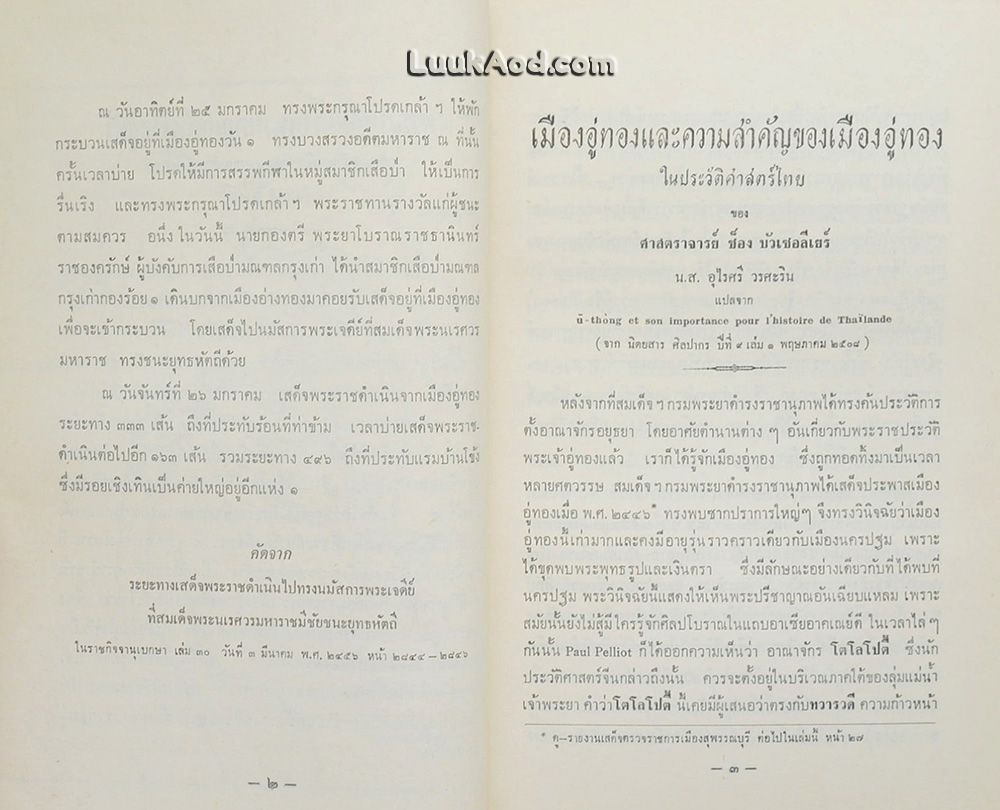 LuukAod.com
ณ วันอาทิตย์ที่ ๒๕ มกราคม ทรงพระกรุณาโปรดเกล้า ฯ ให้พัก
กระบวนเสด็จอยู่ที่เมืองอู่ทองวัน ๑ ทรงบวงสรวงอดีตมหาราช ณ ที่นั้น
ครั้นเวลาบ่าย โปรดให้มีการสรรพกีฬาในหมู่สมาชิกเสือป่า ให้เป็นการ
รื่นเริง และทรงพระกรุณาโปรดเกล้า ฯ พระราชทานรางวัลแก่ผู้ชนะ
ตามสมควร อนึ่ง ในวันนี้ นายกองตรี พระยาโบราณราชธานินทร์
ราชองครักษ์ ผู้บังคับการเสือป่ามณฑลกรุงเก่า ได้นำสมาชิกเสือป่ามณฑล
กรุงเก่ากองร้อย ๑ เดินบกจากเมืองอ่างทองมาคอยรับเสด็จอยู่ที่เมืองอู่ทอง
เพื่อจะเข้ากระบวน โดยเสด็จไปนมัสการพระเจดีย์ที่สมเด็จพระนเรศวร
มหาราช ทรงชนะยุทธหัตถีด้วย
ณ วันจันทร์ที่ ๒๖ มกราคม เสด็จพระราชดำเนินจากเมืองอู่ทอง
ระยะทาง ๓๓๓ เส้น ถึงที่ประทับร้อนที่ท่าข้าม เวลาบ่ายเสด็จพระราช-
ดำเนินต่อไปอีก ๑๖๓ เส้น รวมระยะทาง ๔๙๖ ถึงที่ประทับแรมบ้านโข้ง
ซึ่งมีรอยเชิงเทินเป็นค่ายใหญ่อยู่อีกแห่ง ๑
คัดจาก
ระยะทางเสด็จพระราชดำเนินไปทรงนมัสการพระเจดีย์
ที่สมเด็จพระนเรศวรมหาราชมีชัยชนะยุทธหัตถี
ในราชกิจจานุเบกษา เล่ม ๓๐ วันที่ ๓ มีนาคม พ.ศ. ๒๔๕๖ หน้า ๒๘๔๔ – ๒๘๔๖
— ๒ —
เมืองอู่ทองและความสำคัญของเมืองอู่ทอง
ในประวัติศาสตร์ไทย
ของ
ศาสตราจารย์ ช็อง บัวเซอลีเยร์
น.ส. อุไรศรี วรศะริน
แปลจาก
ū-thòng et son importance pour l'histoire de Thaïlande
( จาก นิตยสาร ศิลปากร ปีที่ ๙ เล่ม ๑ พฤษภาคม ๒๕๐๘ )
หลังจากที่สมเด็จ ฯ กรมพระยาดำรงราชานุภาพได้ทรงค้นประวัติการ
ตั้งอาณาจักรอยุธยา โดยอาศัยตำนานต่าง ๆ อันเกี่ยวกับพระราชประวัติ
พระเจ้าอู่ทองแล้ว เราก็ได้รู้จักเมืองอู่ทอง ซึ่งถูกทอดทิ้งมาเป็นเวลา
หลายศตวรรษ สมเด็จ ฯ กรมพระยาดำรงราชานุภาพได้เสด็จประพาสเมือง
อู่ทองเมื่อ พ.ศ. ๒๔๔๖* ทรงพบซากปราการใหญ่ๆ จึงทรงวินิจฉัยว่าเมือง
อู่ทองนี้เก่ามากและคงมีอายุรุ่นราวคราวเดียวกับเมืองนครปฐม เพราะ
ได้ขุดพบพระพุทธรูปและเงินตรา ซึ่งมีลักษณะอย่างเดียวกับที่ได้พบที่
นครปฐม พระวินิจฉัยนี้แสดงให้เห็นพระปรีชาญาณอันเฉียบแหลม เพราะ
สมัยนั้นยังไม่สู้มีใครรู้จักศิลปโบราณในแถบอาเซียอาคเณย์ดี ในเวลาไล่ ๆ
กันนั้น Paul Pelliot ก็ได้ออกความเห็นว่า อาณาจักร โตโลโปตี้ ซึ่งนัก
ประวัติศาสตร์จีนกล่าวถึงนั้น ควรจะตั้งอยู่ในบริเวณภาคใต้ของลุ่มแม่น้ำ
เจ้าพระยา คำว่าโตโลโปตี้ นี้เคยมีผู้เสนอว่าตรงกับทวารวดี ความก้าวหน้า
* ดู–รายงานเสด็จตรวจราชการเมืองสุพรรณบุรี ต่อไปในเล่มนี้ หน้า ๒๗
— ๓ —